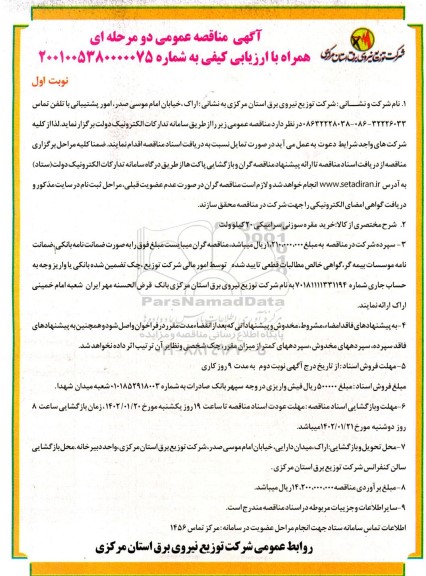 آگهی مناقصه عمومی دو مرحله ای
همراه با ارزیابی کیفی به شماره ۲۰۰۱۰۰۵۳۸۰۰۰۰۰۷۵
شرکت توزیع نیروی برق استان مرکزی
نوبت اول
۱. نام شرکت و نشـــانی : شرکت توزیع نیروی برق استان مرکزی به نشانی : اراک ، خیابان امام موسی صدر، امور پشتیبانی با تلفن تماس
۳۲۲۲۶۰۳۳-۰۸۶ - ۰۸۶۳۲۲۲۸۰۳۸ در نظر دارد مناقصه عمومی زیر را از طریق سامانه تدارکات الکترونیک دولت برگزار نماید. لذا از کلیه
شرکت های واجد شرایط دعوت به عمل می آید در صورت تمایل نسبت به دریافت اسناد مناقصه اقدام نمایند. ضمنا کلیه مراحل برگزاری
مناقصه از دریافت اسناد مناقصه تا ارائه پیشنهاد مناقصه گران و بازگشایی پاکت ها از طریق درگاه سامانه تدارکات الکترونیک دولت (ستاد)
به آدرس www.setadiran.ir انجام خواهد شد و لازم است مناقصه گران در صورت عدم عضویت قبلی، مراحل ثبت نام در سایت مذکور و
دریافت گواهی امضای الکترونیکی را جهت شرکت در مناقصه محقق سازند.
۲. شرح مختصری از کالا: خرید مقره سوزنی سرامیکی ۲۰ کیلو ولت
۳ - سپرده شرکت در مناقصه به مبلغ ۱،۲۱۰،۰۰۰،۰۰۰ ریال میباشد. مناقصه گران میبایست مبلغ فوق را به صورت ضمانت نامه بانکی، ضمانت
نامه موسسات بیمه گر، گواهی خالص مطالبات قطعی تایید شده توسط امور مالی شرکت توزیع ، چک تضمین شده بانکی یا واریز وجه به
حساب جاری شماره ۷۰۱۸۱۱۱۱۳۳۱۱۹۴ به نام شرکت توزیع نیروی برق استان مرکزی بانک قرض الحسنه مهر ایران شعبه امام خمینی
اراک ارائه نمایند.
۴- به پیشنهادهای فاقد امضاء، مشروط، مخدوش و پیشنهاداتی که بعد از انقضاء مدت مقرر در فراخوان واصل شود و همچنین به پیشنهادهای
فاقد سپرده، سپرده های مخدوش، سپرده های کمتر از میزان مقرر، چک شخصی و نظایر آن ترتیب اثر داده نخواهد شد.
۵- مهلت فروش اسناد : از تاریخ درج آگهی نوبت دوم به مدت ۹ روز کاری
مبلغ فروش اسناد : مبلغ ۵۰۰۰۰۰ ریال فیش واریزی در وجه سپهر بانک صادرات به شماره ۰۱۰۱۸۵۲۹۱۸۰۰۳ شعبه میدان شهدا.
۶- مهلت و بازگشایی اسناد مناقصه : مهلت عودت اسناد مناقصه تا ساعت ۱۹ روز یکشنبه مورخ ۱۴۰۲/۰۱/۲۰ ، زمان بازگشایی ساعت ۸
روز دوشنبه مورخ ۱۴۰۲/۰۱/۲۱ میباشد.
۷- محل تحویل و بازگشایی: اراک، میدان دارایی، خیابان امام موسی صدر، شرکت توزیع برق استان مرکزی. واحد دبیرخانه. محل بازگشایی
سالن کنفرانس شرکت توزیع برق استان مرکزی.
۸- مبلغ برآوردی مناقصه ۱۴،۲۰۰،۰۰۰،۰۰۰ ریال میباشد.
۹- سایر اطلاعات و جزییات مربوطه در اسناد مناقصه مندرج است.
اطلاعات تماس سامانه ستاد جهت انجام مراحل عضویت در سامانه : مرکز تماس ۱۴۵۶
روابط عمومی شرکت توزیع نیروی برق استان مرکزی
ParsNamadData